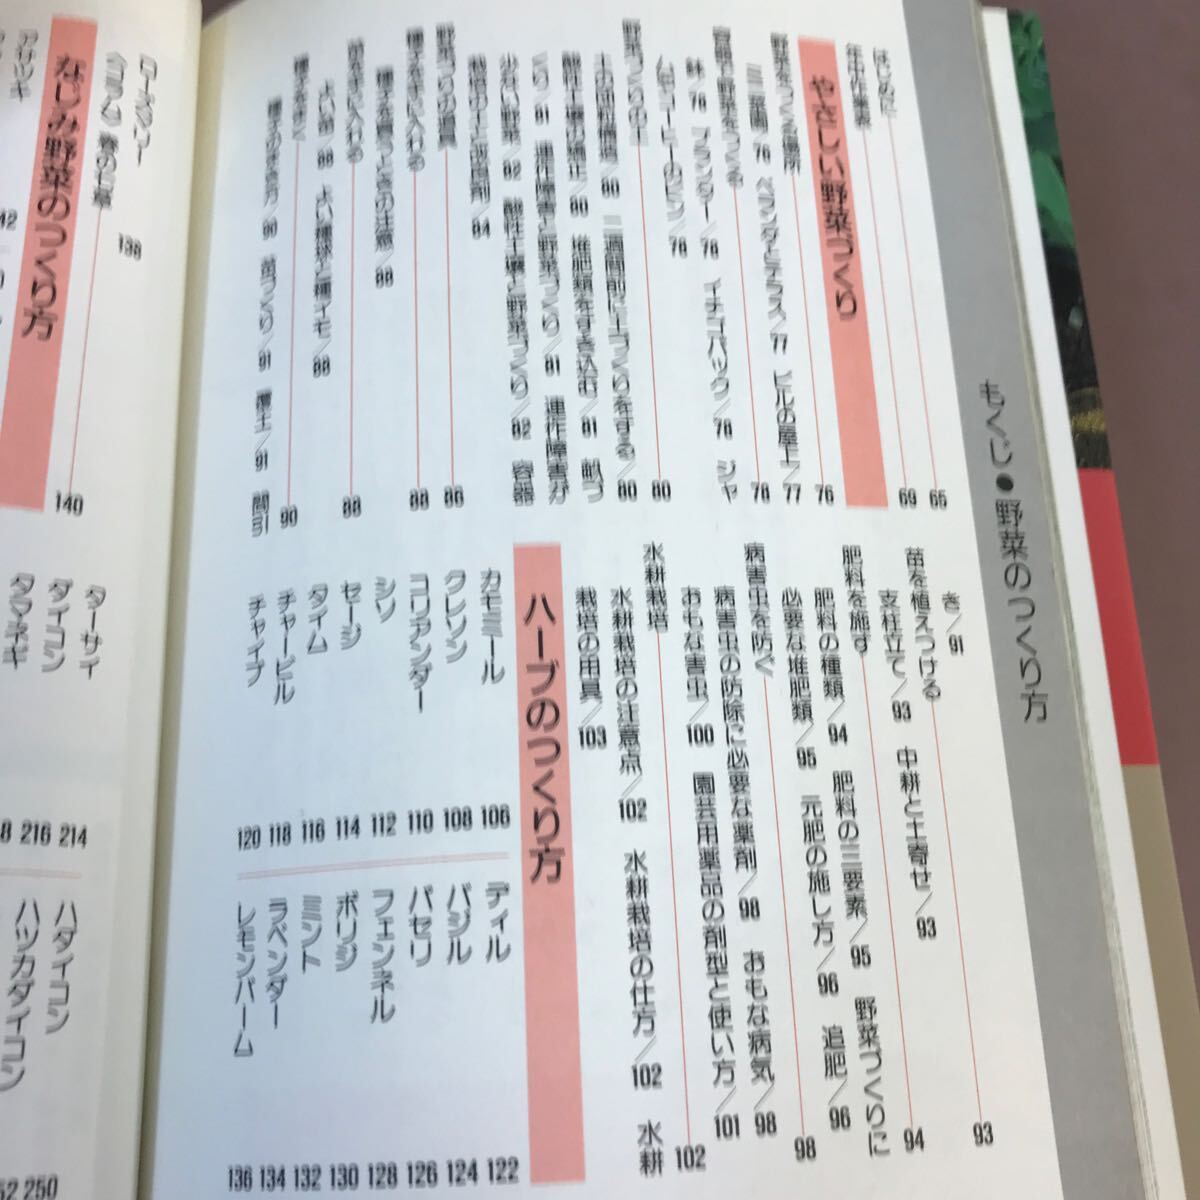 もくじ●野菜のつくり方
はじめに 65
年間作業表 69
やさしい野菜づくり
野菜をつくる場所 76
三菜園／76 ベランダとテラス／77 ビルの屋上／77
容器で野菜をつくる 78
鉢／78 プランター／78 イチゴパック／78 ジャ
野菜づくりの土 80
土の団粒構造／80 二週間前に土づくりをする／80
酸性土壌の矯正／80 堆肥類をすき込む／81 畝づ
くり／81 連作障害と野菜づくり／81 連作障害が
少ない野菜／82 酸性土壌と野菜づくり／82 容器
栽培の土と改良剤／84
野菜づくりの道具 86
種子を手に入れる 88
種子を買うときの注意／88
苗を手に入れる 88
よい苗／88 よい種球と種イモ／88
種子をまく 90
種子のまき方／90 苗づくり／91 覆土／91 間引
き／91
苗を植えつける 93
支柱立て／93 中耕と土寄せ／93
肥料を施す 94
肥料の種類／94 肥料の三要素／95 野菜づくりに
必要な堆肥類／95 元肥の施し方／96 追肥／96
病害虫を防ぐ 98
病害虫の防除に必要な薬剤／98 おもな病気／98
おもな害虫／100 園芸用薬品の剤型と使い方／101
水耕栽培 102
水耕栽培の注意点／102 水耕栽培の仕方／102 水耕
栽培の用具／103
ハーブのつくり方
カモミール 106
クレソン 108
コリアンダー 110
シソ 112
セージ 114
タイム 116
チャービル 118
チャイブ 120
ディル 122
バジル 124
パセリ 126
フェンネル 128
ボリジ 130
ミント 132
ラベンダー 134
レモンバーム 136
ローズマリー 138
〈コラム〉春の七草 140
なじみ野菜のつくり方
ターサイ 214
ダイコン 216
タマネギ
ハダイコン 250
ハツカダイコン